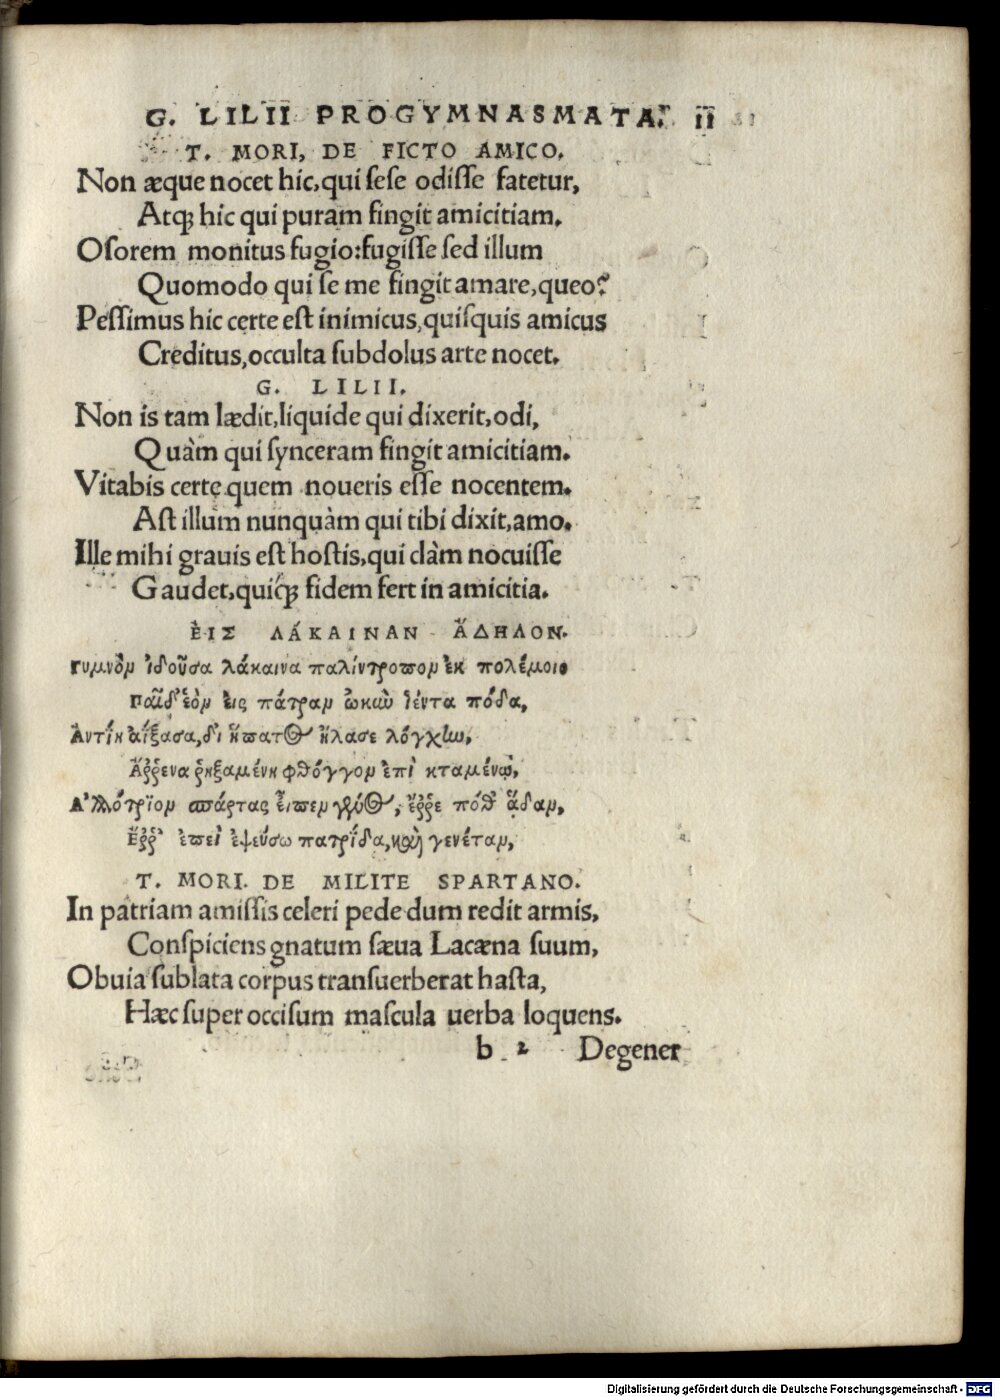 G. LILII PROGYMNASMATA. 11
T. MORI, DE FICTO AMICO.
Non æque nocet hic, qui ſeſe odiſſe fatetur,
Atq; hic qui puram fingit amicitiam.
Oſorem monitus fugio: fugiſſe ſed illum
Quomodo qui ſe me fingit amare, queo?
Peſſimus hic certe eſt inimicus, quiſquis amicus
Creditus, occulta ſubdolus arte nocet.
G. LILII.
Non is tam lædit, liquide qui dixerit, odi,
Quàm qui ſynceram fingit amicitiam.
Vitabis certe quem noueris eſſe nocentem.
Aſt illum nunquàm qui tibi dixit, amo.
Ille mihi grauis eſt hoſtis, qui clàm nocuiſſe
Gaudet, quiq; fidem fert in amicitia.
ἘΙΣ ΛΆΚΑΙΝΑΝ ἌΔΗΛΟΝ.
Γυμνὸν ἰδοῦσα λάκαινα παλίντροπον ἐκ πολέμοιο
Παῖδ' ἑὸν εἰς πάτραν ὠκὺν ἱέντα πόδα,
Ἀντίη ἀΐξασα, δι' ἥπατος ἤλασε λόγχην,
Ἄῤῥενα ῥηξαμένη φθόγγον ἐπὶ κταμένῳ,
Ἀλλότριον σπάρτας εἶπεν γένος, ἔῤῥε ποθ' ἅδαν,
Ἔῤῥ' ἐπεὶ ἐψεύσω πατρίδα, καὶ γενέταν,
T. MORI. DE MILITE SPARTANO.
In patriam amiſſis celeri pede dum redit armis,
Conſpiciens gnatum ſæua Lacæna ſuum,
Obuia ſublata corpus tranſuerberat haſta,
Hæc ſuper occiſum maſcula uerba loquens.
b 2 Degener
Digitalisierung gefördert durch die Deutsche Forschungsgemeinschaft - DFG